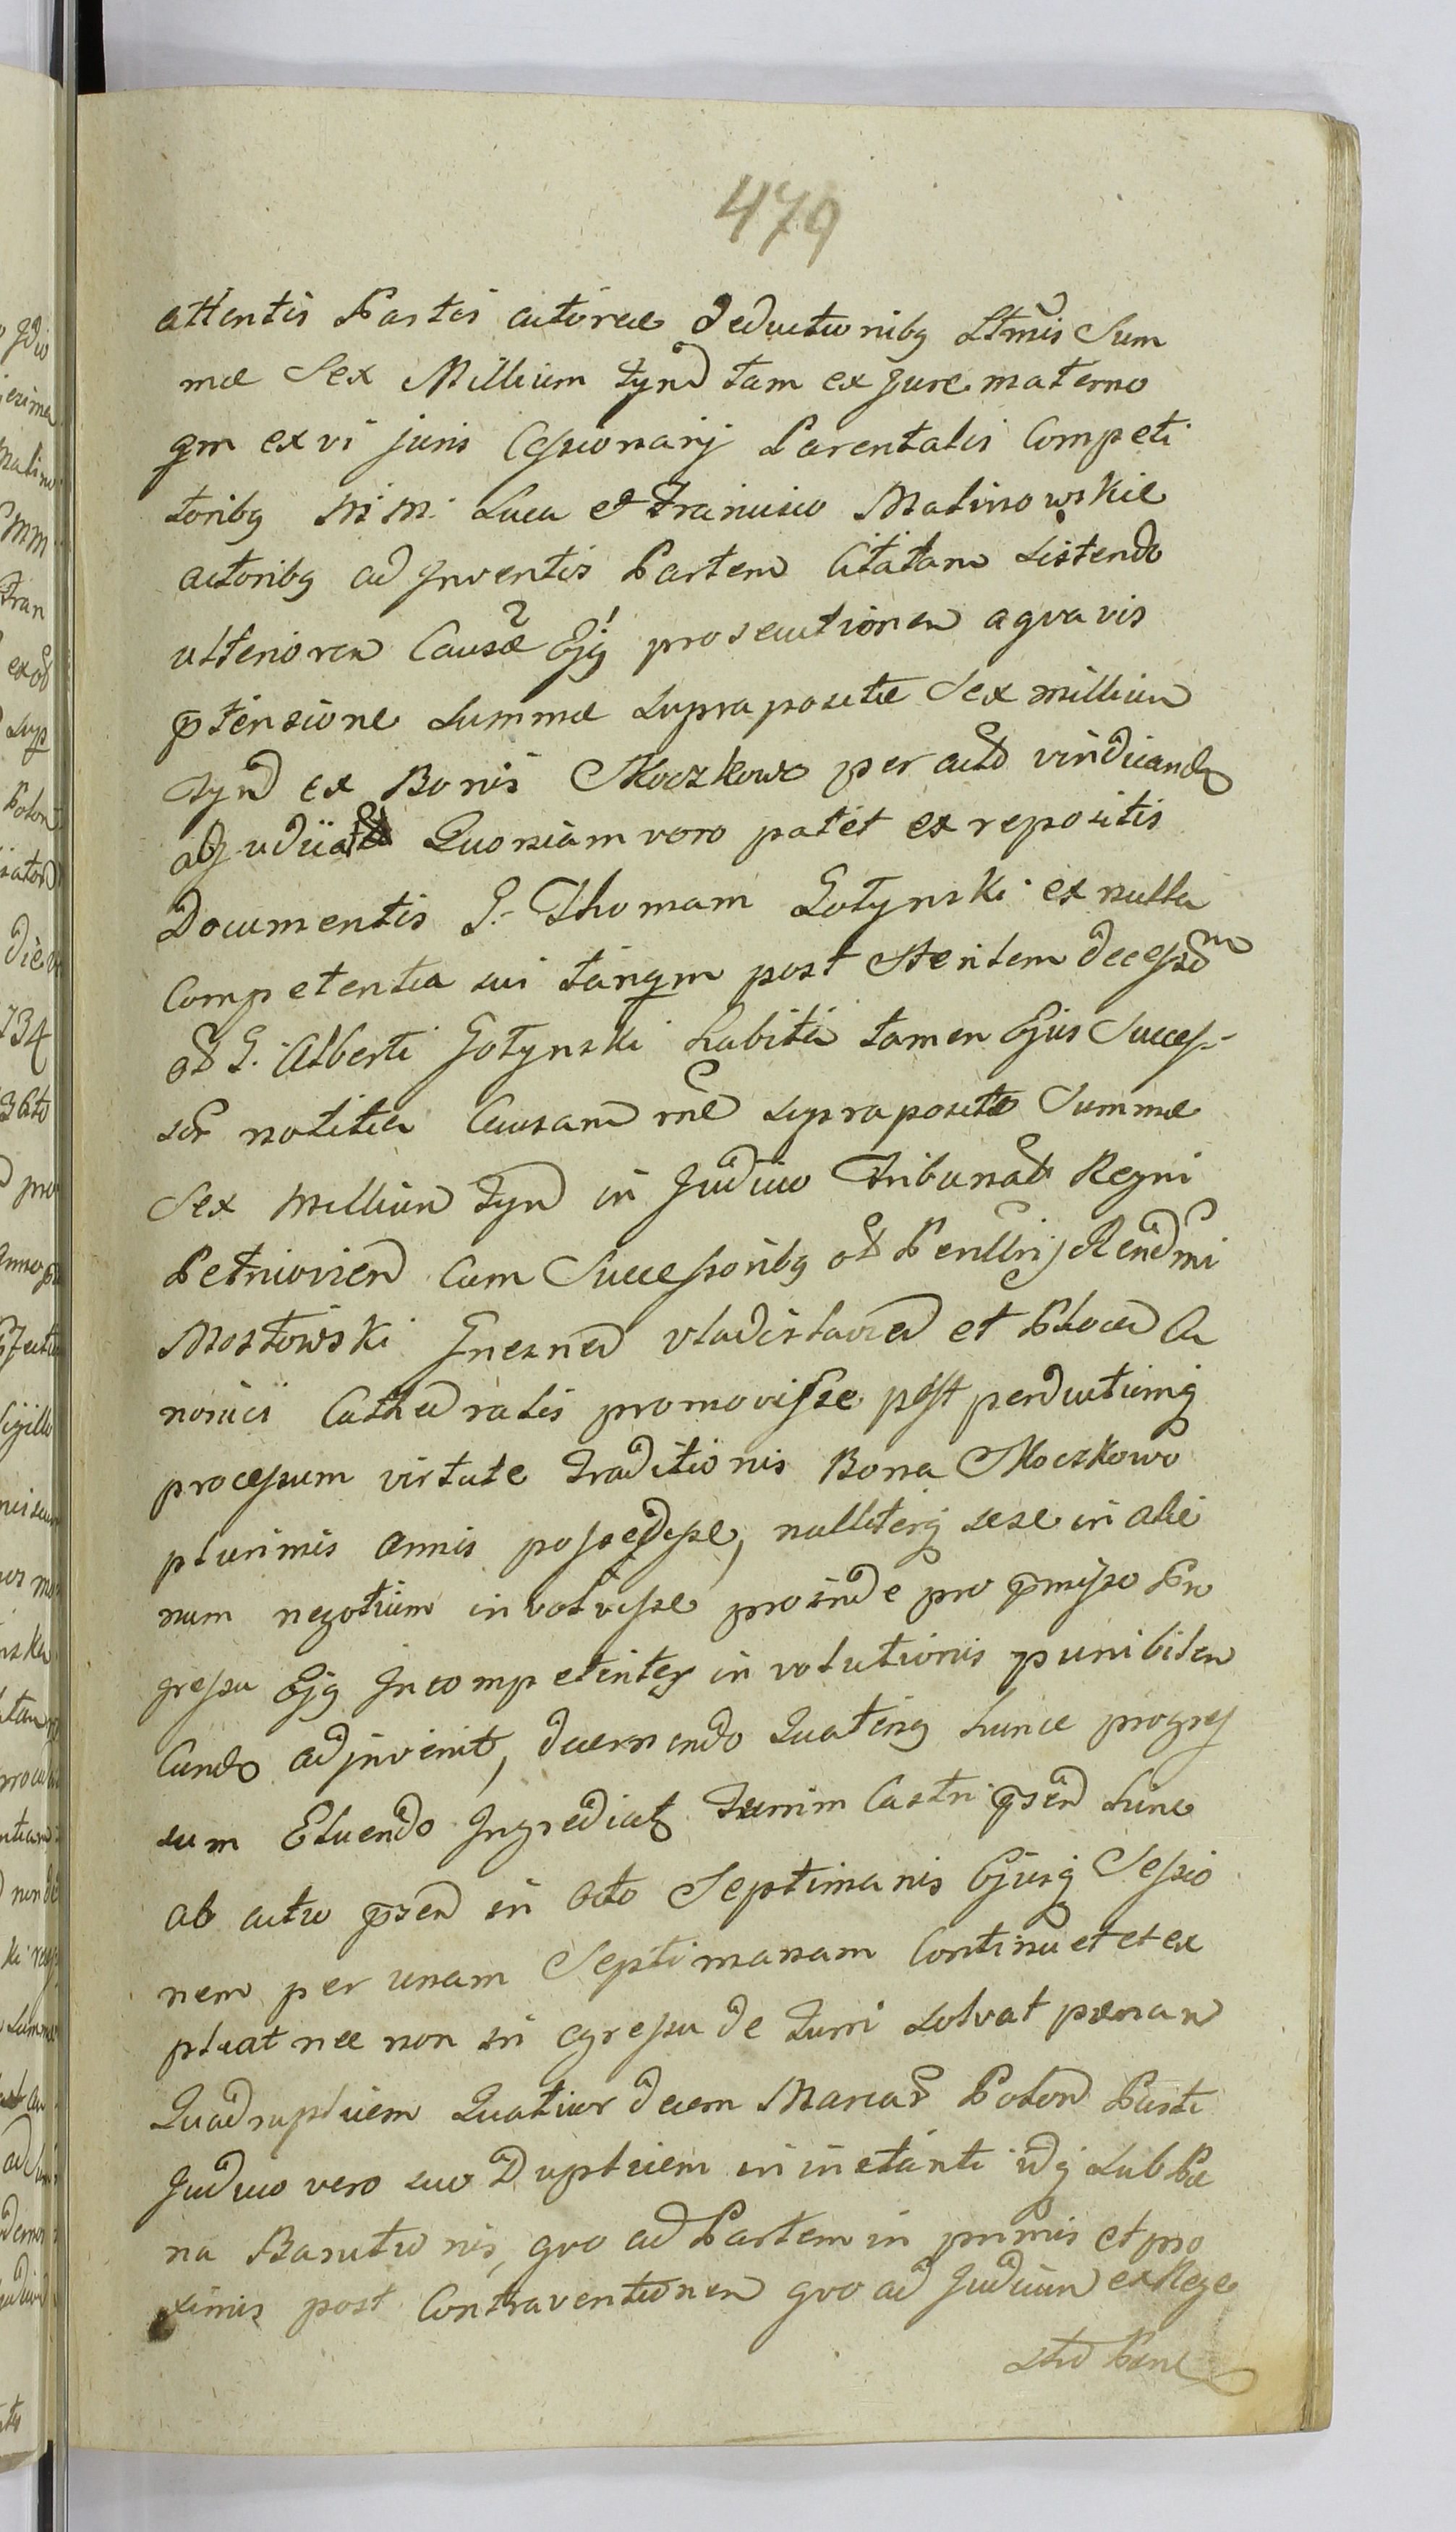 479
attentis Partis actoreæ Deductionibq Ltmis Sum
mæ Sex Millium tynd tam ex jure materno
qm ex vi juris Cessionarij Parentalis Competi
toribq MM. Luca et Francisco Malinowskie
actoribq ad Inventis Partem Citatam Listendo
ulteriorem Causæ Ejq prosecutionem a qvavis
ptensione Summæ supra positæ Sex millium
tynd ex Bonis Skoczkowo per act vindicanda
abjudicat Quoniam vero patet ex repositis
Documentis G. Thomam Gotynski ex nulla
Competentia sui tanqm post Sterilem decess
ol G. Alberti Gotynski habita tamen Ejus Succes-
sor notitia Causam rne supra positæ Summæ
Sex Millium tynd in Judicio Tribunal Regni
Petricovien Cum Successoribq ol Perillris Rendmi
Mostowski Gnesnen Vladislavien et Plocen Ca
nonici Cathedralis promovisse post perductumq
processum virtute traditionis Bona Skoczkowo
plurimis annis possedisse, nulliterq sese in alie
num negotium involvisse proinde pro pmisso Pro
gressu Ejq Incompetenter involutionis punibilem
Eundo adjinvenit, decernendo Quatenq hunce progres
sum Eluendo Ingrediatz turrim Castri psen hinc
ab actu psen in octo Septimanis Ejusq Sessio
nem per unam Septimanam Continuet et ex
pleat nec non in egressu de turri solvat pænam
Quadruplicem Quatuor decem Marcar Polon Parti
Judicio vero suo Duplicem in instanti idq sub Pæ
na Banitionis, qvo ad Partem in primis et pro
ximis post Contraventionem qvo ad Judicium ex Rege